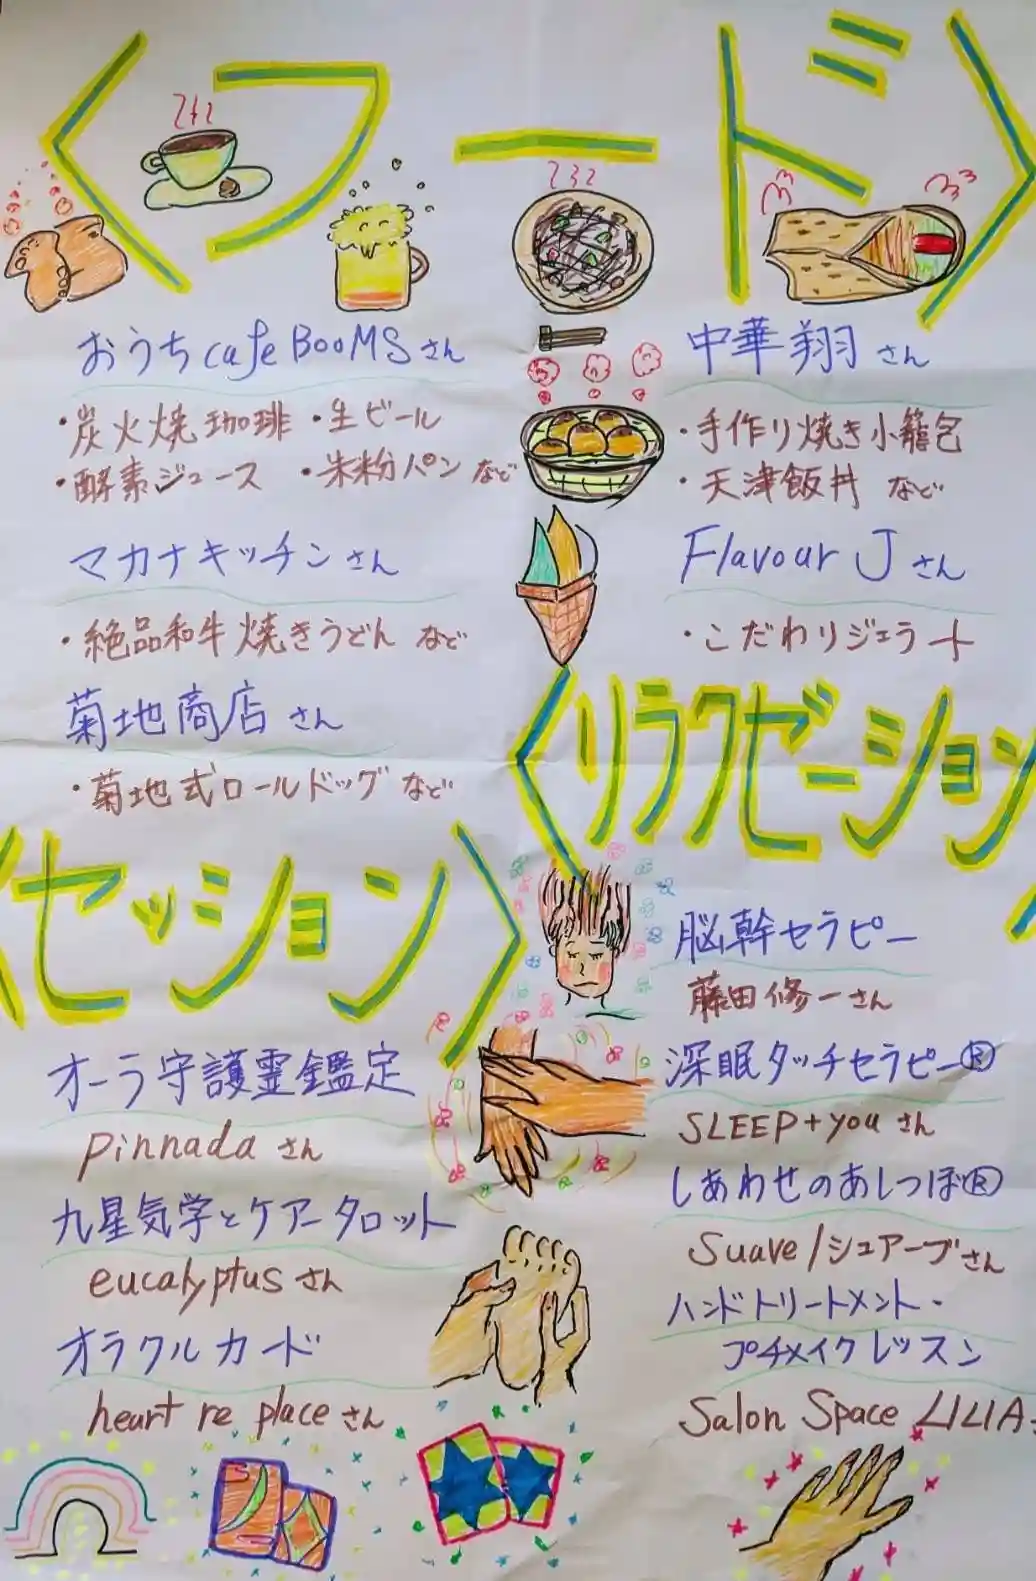 〈フード〉
おうちcafe BooMSさん
・炭火焼珈琲 ・生ビール
・酵素ジュース ・米粉パン など
マカナキッチンさん
・絶品和牛焼きうどん など
菊地商店さん
・菊地式ロールドッグ など
中華翔さん
・手作り焼き小籠包
・天津飯丼 など
Flavour Jさん
・こだわりジェラート
〈セッション〉
オーラ守護霊鑑定
pinnadaさん
九星気学とケアータロット
eucalyptusさん
オラクルカード
heart re placeさん
〈リラクゼーション
脳幹セラピー
藤田修一さん
深眠タッチセラピー®
SLEEP+youさん
しあわせのあしつぼ®
Suave/シュアーブさん
ハンドトリートメント・
プチメイクレッスン
Salon Space LILIA